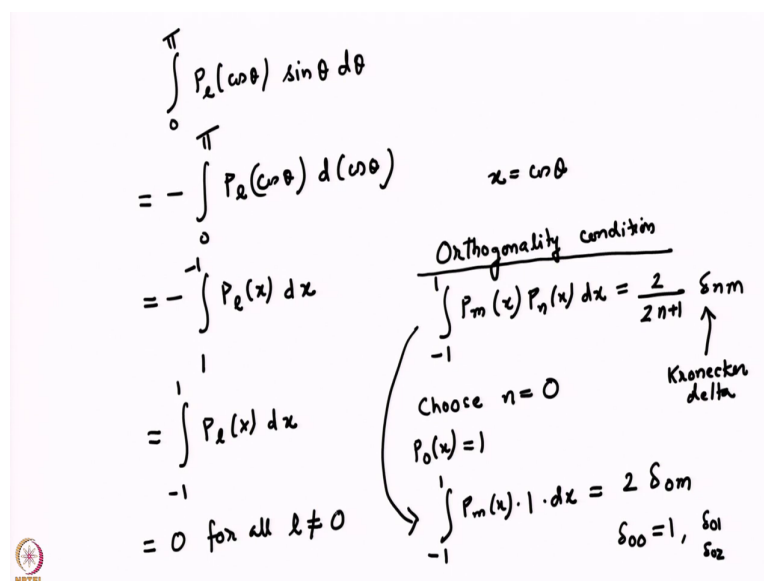 ∫₀^π Pₗ(cosθ) sinθ dθ
= − ∫₀^π Pₗ(cosθ) d(cosθ)
x = cosθ
= − ∫₁^−1 Pₗ(x) dx
= ∫₋₁^1 Pₗ(x) dx
= 0 for all l ≠ 0
Orthogonality condition
∫₋₁^1 Pₘ(x) Pₙ(x) dx = 2/(2n+1) δnm
Kronecker
delta
Choose n = 0
P₀(x) = 1
∫₋₁^1 Pₘ(x)·1·dx = 2 δ₀ₘ
δ₀₀ = 1, δ₀₁
δ₀₂
NPTEL